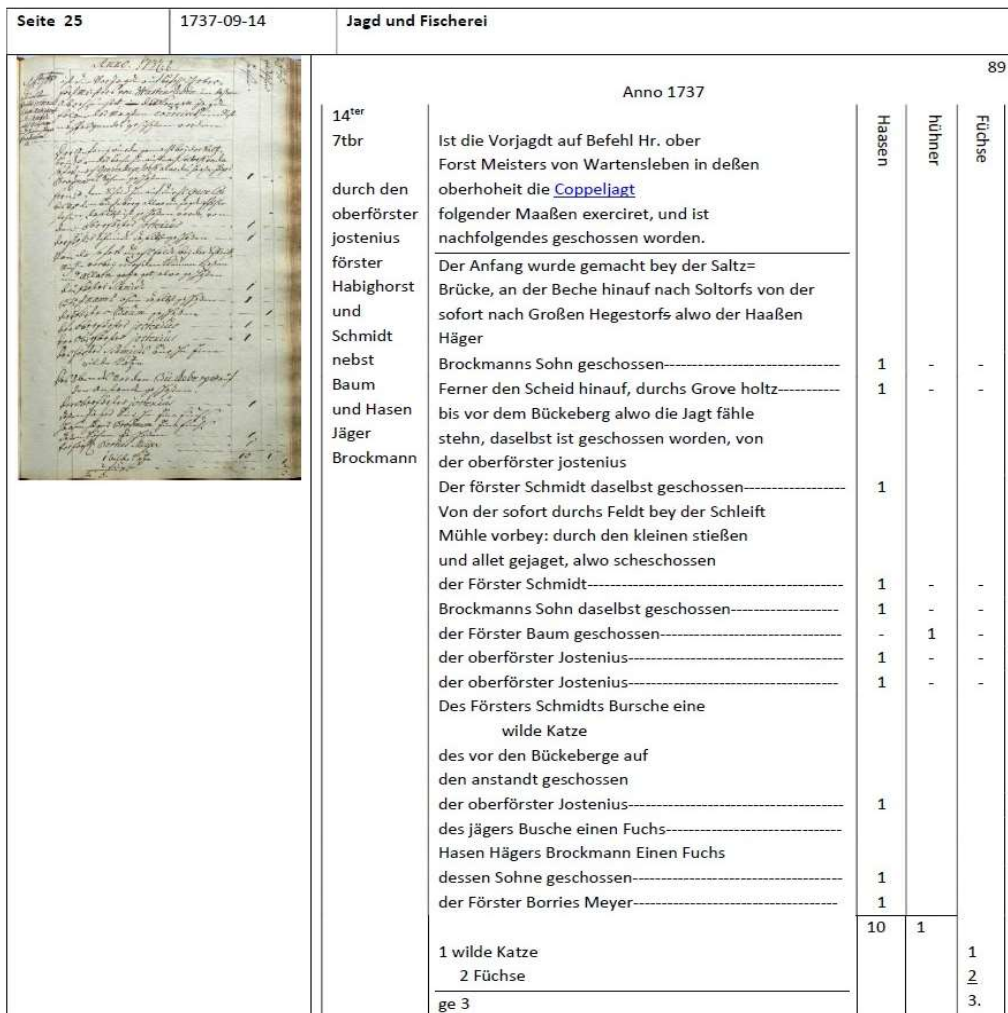 Seite 25 1737-09-14 Jagd und Fischerei
89
Anno 1737
Haasen hühner Füchse
14ter
7tbr Ist die Vorjagdt auf Befehl Hr. ober
Forst Meisters von Wartensleben in deßen
durch den oberhoheit die Coppeljagt
oberförster folgender Maaßen exerciret, und ist
jostenius nachfolgendes geschossen worden.
förster Der Anfang wurde gemacht bey der Saltz=
Habighorst Brücke, an der Beche hinauf nach Soltorfs von der
und sofort nach Großen Hegestorfs alwo der Haaßen
Schmidt Häger
nebst Brockmanns Sohn geschossen------------------------------ 1 - -
Baum Ferner den Scheid hinauf, durchs Grove holtz----------- 1 - -
und Hasen bis vor dem Bückeberg alwo die Jagt fähle
Jäger stehn, daselbst ist geschossen worden, von
Brockmann der oberförster jostenius
Der förster Schmidt daselbst geschossen------------------ 1
Von der sofort durchs Feldt bey der Schleift
Mühle vorbey: durch den kleinen stießen
und allet gejaget, alwo scheschossen
der Förster Schmidt-------------------------------------------- 1 - -
Brockmanns Sohn daselbst geschossen------------------- 1 - -
der Förster Baum geschossen------------------------------- - 1 -
der oberförster Jostenius------------------------------------- 1 - -
der oberförster Jostenius------------------------------------ 1 - -
Des Försters Schmidts Bursche eine
wilde Katze
des vor den Bückeberge auf
den anstandt geschossen
der oberförster Jostenius------------------------------------- 1
des jägers Busche einen Fuchs------------------------------
Hasen Hägers Brockmann Einen Fuchs
dessen Sohne geschossen------------------------------------ 1
der Förster Borries Meyer----------------------------------- 1
10 1
1 wilde Katze 1
2 Füchse 2
ge 3 3.